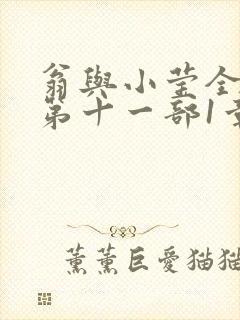 翁與小莹全
第十一部1章
薰薰巨愛猫猫